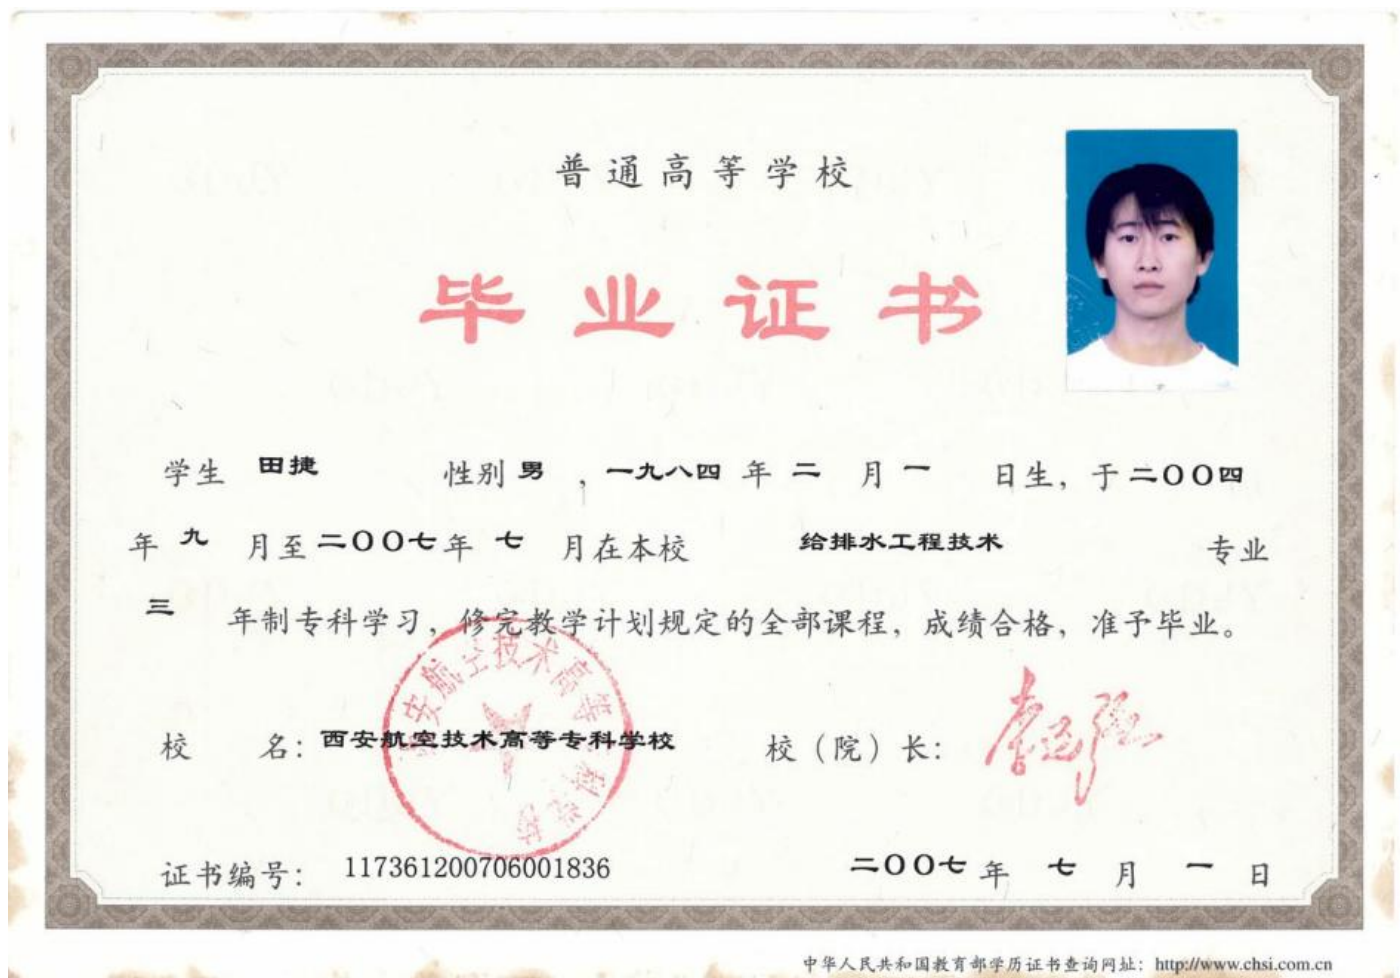 普通高等学校
毕业证书
学生 田捷 性别 男 ，一九八四 年 二 月 一 日生，于 二〇〇四
年 九 月至 二〇〇七 年 七 月在本校 给排水工程技术 专业
三 年制专科学习，修完教学计划规定的全部课程，成绩合格，准予毕业。
西安航空技术高等专科学校
校 名：西安航空技术高等专科学校 校（院）长：
证书编号：117361200706001836 二〇〇七 年 七 月 一 日
中华人民共和国教育部学历证书查询网址：http://www.chsi.com.cn